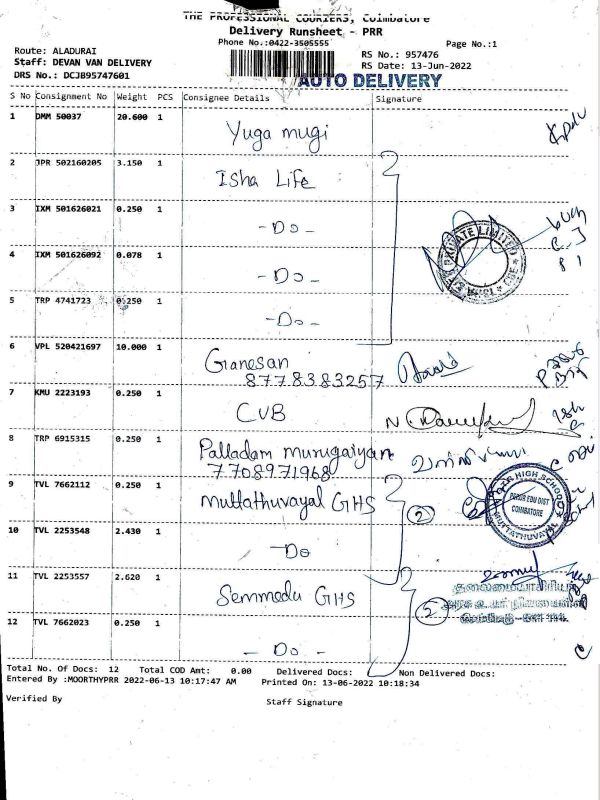 THE PROFESSIONAL COURIERS, Coimbatore
Delivery Runsheet - PRR
Phone No.:0422-3505555
Page No.:1
Route: ALADURAI
RS No.: 957476
Staff: DEVAN VAN DELIVERY
RS Date: 13-Jun-2022
DRS No.: DCJB95747601
AUTO DELIVERY
S No Consignment No Weight PCS Consignee Details Signature
1 DMM 50037 20.600 1 Yuga mugi
2 JPR 502160205 3.150 1 Isha Life
3 IXM 501626021 0.250 1 - Do -
4 IXM 501626092 0.078 1 - Do -
PRIVATE LIMITED
5 TRP 4741723 0.250 1 - Do -
6 VPL 520421697 10.000 1 Ganesan
8778383257
7 KMU 2223193 0.250 1 CUB
8 TRP 6915315 0.250 1 Palladam murugaiyan
7708971968
9 TVL 7662112 0.250 1 Muttathuvayal GHS 2
HIGH SCHOOL
PERUR EDU DIST
COIMBATORE
MUTTATHUVAYAL
10 TVL 2253548 2.430 1 - Do
11 TVL 2253557 2.620 1 Semmedu GHS
12 TVL 7662023 0.250 1 - Do -
Total No. Of Docs: 12 Total COD Amt: 0.00 Delivered Docs: Non Delivered Docs:
Entered By :MOORTHYPRR 2022-06-13 10:17:47 AM Printed On: 13-06-2022 10:18:34
Verified By Staff Signature